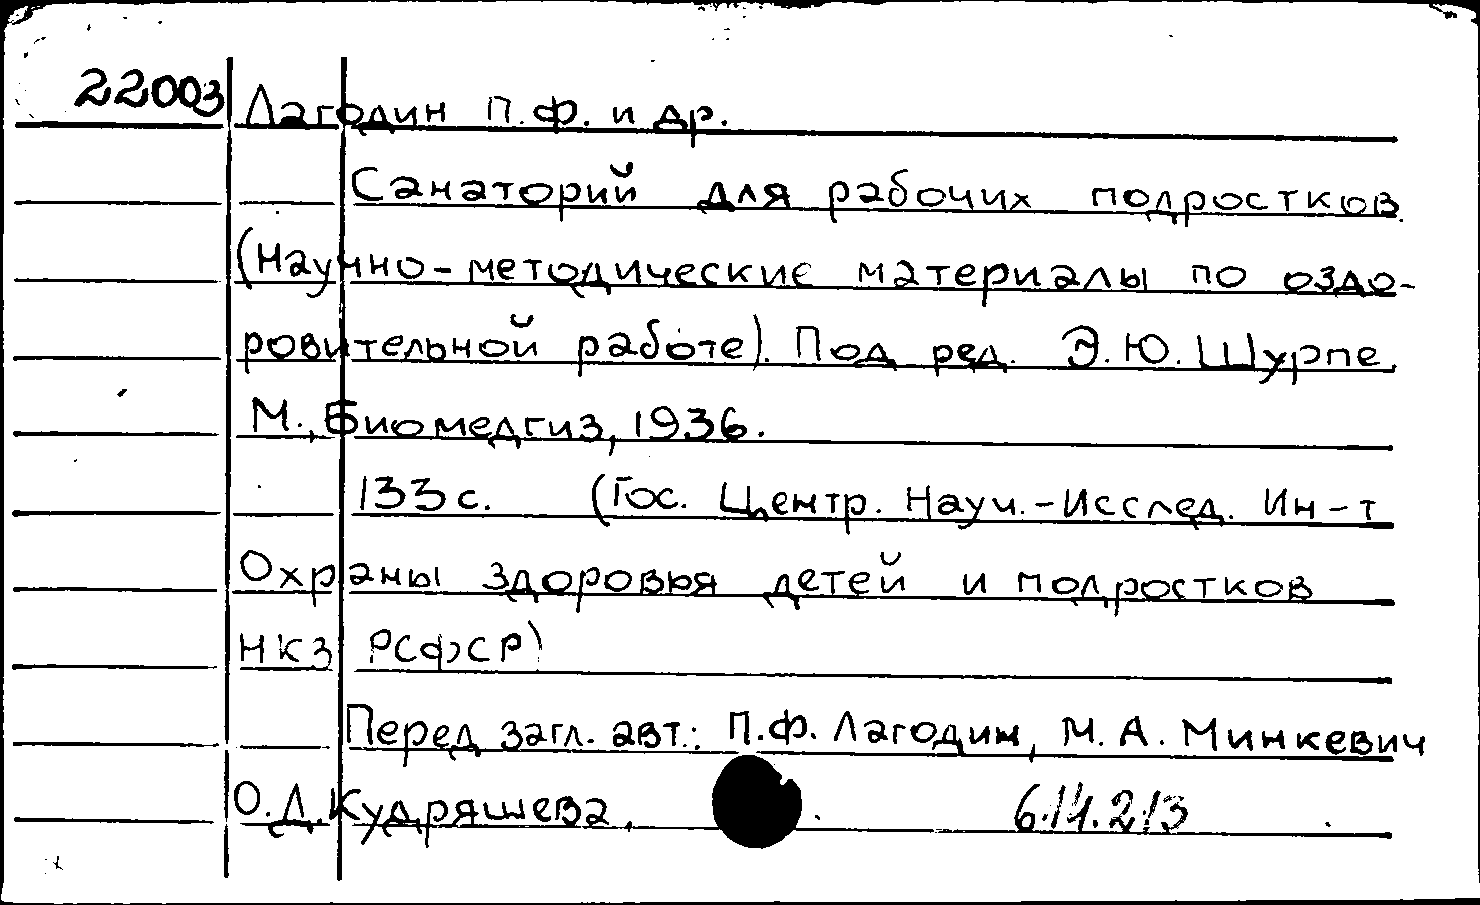 22003 Лагодин П.Ф. и др.
Санаторий для рабочих подростков
(Научно-методические материалы по оздо-
ровительной работе). Под ред. Э.Ю. Шурпе.
М., Биомедгиз, 1936.
133 с. (Гос. Центр. Науч.-Исслед. Ин-т
Охраны здоровья детей и подростков
НКЗ РСФСР)
Перед загл. авт.: П.Ф. Лагодин, М.А. Минкевич
О.Д. Кудряшева.